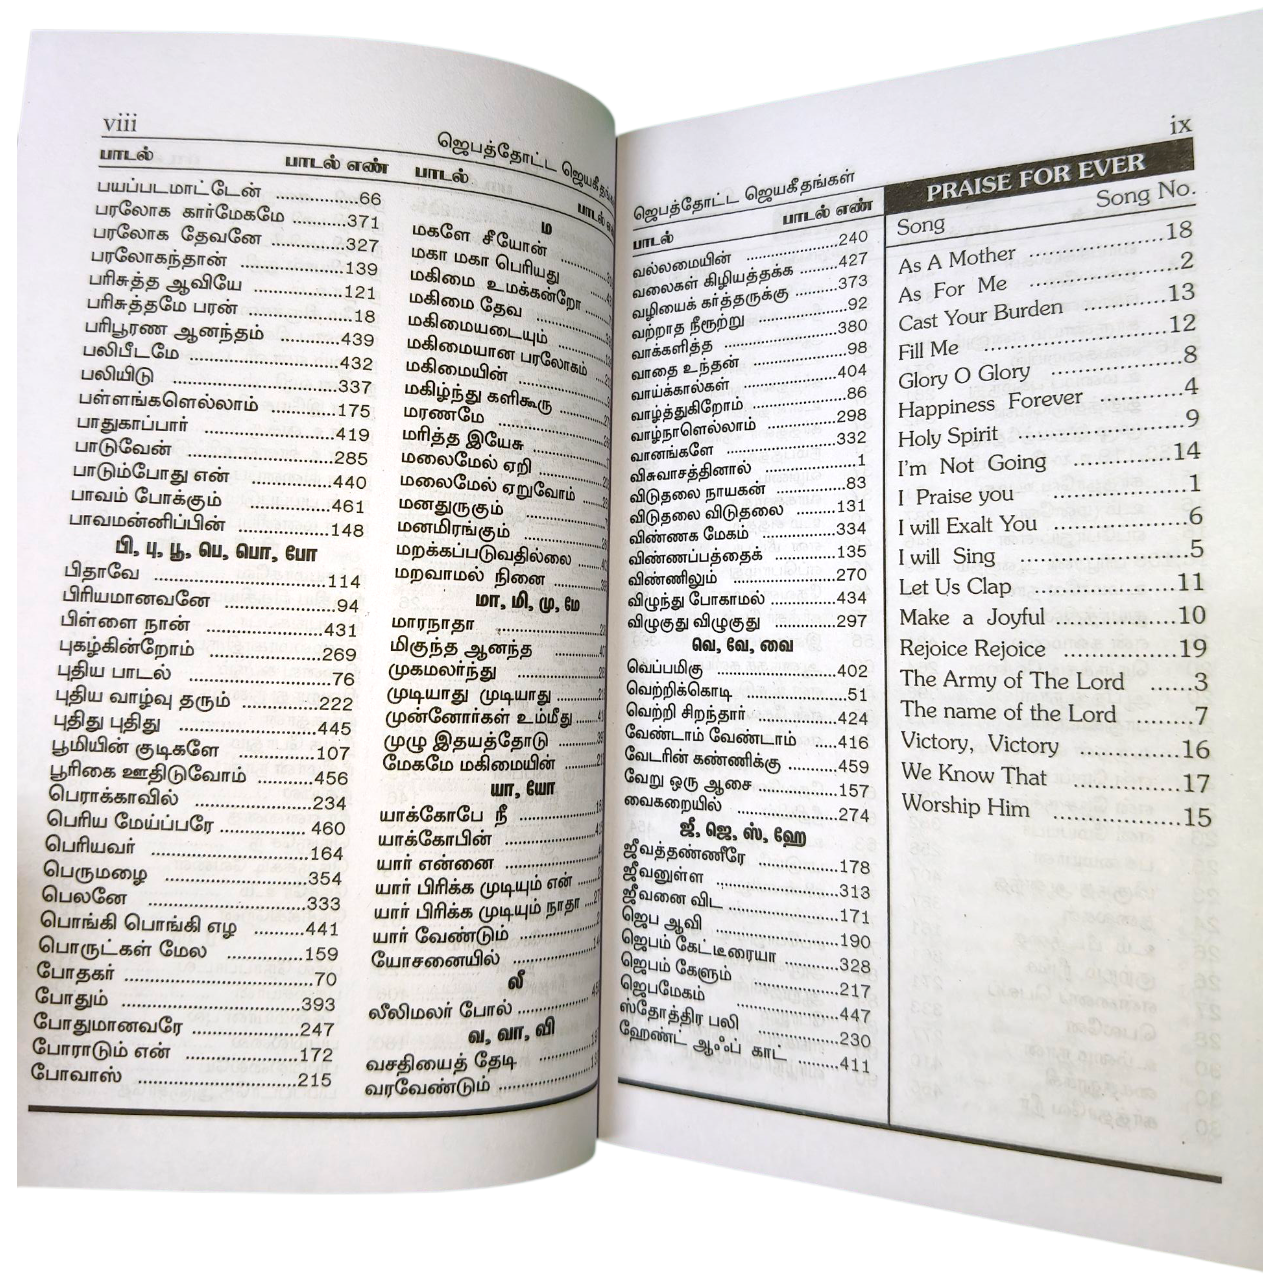 viii
ஜெபத்தோட்ட ஜெயகீதங்கள்
பாடல் பாடல் எண்
பயப்படமாட்டேன் ................66
பரலோக கார்மேகமே ..........371
பரலோக தேவனே ..............327
பரலோகந்தான் ..................139
பரிசுத்த ஆவியே ................121
பரிசுத்தமே பரன் ..................18
பரிபூரண ஆனந்தம் ............439
பலிபீடமே ........................432
பலியிடு ..........................337
பள்ளங்களெல்லாம் ............175
பாதுகாப்பார் ....................419
பாடுவேன் ........................285
பாடும்போது என் ................440
பாவம் போக்கும் ................461
பாவமன்னிப்பின் ................148
பி, பு, பூ, பெ, பொ, போ
பிதாவே ..........................114
பிரியமானவனே ..................94
பிள்ளை நான் ....................431
புகழ்கின்றோம் ..................269
புதிய பாடல் ......................76
புதிய வாழ்வு தரும் ............222
புதிது புதிது ......................445
பூமியின் குடிகளே ..............107
பூரிகை ஊதிடுவோம் ..........456
பெராக்காவில் ..................234
பெரிய மேய்ப்பரே ..............460
பெரியவர் ........................164
பெருமழை ......................354
பெலனே ..........................333
பொங்கி பொங்கி எழ ..........441
பொருட்கள் மேல ..............159
போதகர் ..........................70
போதும் ..........................393
போதுமானவரே ................247
போராடும் என் ..................172
போவாஸ் ........................215
பாடல்
ம
மகளே சீயோன்
மகா மகா பெரியது
மகிமை உமக்கன்றோ
மகிமை தேவ
மகிமையடையும்
மகிமையான பரலோகம்
மகிமையின்
மகிழ்ந்து களிகூரு
மரணமே
மரித்த இயேசு
மலைமேல் ஏறி
மலைமேல் ஏறுவோம்
மனதுருகும்
மனமிரங்கும்
மறக்கப்படுவதில்லை
மறவாமல் நினை
மா, மி, மு, மே
மாரநாதா
மிகுந்த ஆனந்த
முகமலர்ந்து
முடியாது முடியாது
முன்னோர்கள் உம்மீது
முழு இதயத்தோடு
மேகமே மகிமையின்
யா, யோ
யாக்கோபே நீ
யாக்கோபின்
யார் என்னை
யார் பிரிக்க முடியும் என்
யார் பிரிக்க முடியும் நாதா
யார் வேண்டும்
யோசனையில்
லீ
லீலிமலர் போல்
வ, வா, வி
வசதியைத் தேடி
வரவேண்டும்
ix
ஜெபத்தோட்ட ஜெயகீதங்கள்
பாடல் பாடல் எண்
வல்லமையின் ..................240
வலைகள் கிழியத்தக்க ........427
வழியைக் கர்த்தருக்கு ........373
வற்றாத நீரூற்று ................92
வாக்களித்த ....................380
வாதை உந்தன் ..................98
வாய்க்கால்கள் ................404
வாழ்த்துகிறோம் ................86
வாழ்நாளெல்லாம் ............298
வானங்களே ....................332
விசுவாசத்தினால் ................1
விடுதலை நாயகன் ..............83
விடுதலை விடுதலை ..........131
விண்ணக மேகம் ..............334
விண்ணப்பத்தைக் ............135
விண்ணிலும் ..................270
விழுந்து போகாமல் ..........434
விழுகுது விழுகுது ............297
வெ, வே, வை
வெப்பமிகு ......................402
வெற்றிக்கொடி ..................51
வெற்றி சிறந்தார் ..............424
வேண்டாம் வேண்டாம் .....416
வேடரின் கண்ணிக்கு ........459
வேறு ஒரு ஆசை ..............157
வைகறையில் ..................274
ஜீ, ஜெ, ஸ், ஹே
ஜீவத்தண்ணீரே ................178
ஜீவனுள்ள ......................313
ஜீவனை விட ..................171
ஜெப ஆவி ......................190
ஜெபம் கேட்டீரையா ..........328
ஜெபம் கேளும் ................217
ஜெபமேகம் ....................447
ஸ்தோத்திர பலி ..............230
ஹேண்ட் ஆஃப் காட் ........411
PRAISE FOR EVER
Song Song No.
As A Mother ................18
As For Me ..................2
Cast Your Burden ............13
Fill Me ......................12
Glory O Glory ................8
Happiness Forever ...........4
Holy Spirit ....................9
I'm Not Going .............14
I Praise you ..................1
I will Exalt You ...............6
I will Sing ....................5
Let Us Clap ................11
Make a Joyful ..............10
Rejoice Rejoice ..............19
The Army of The Lord ......3
The name of the Lord ........7
Victory, Victory .............16
We Know That ..............17
Worship Him ................15